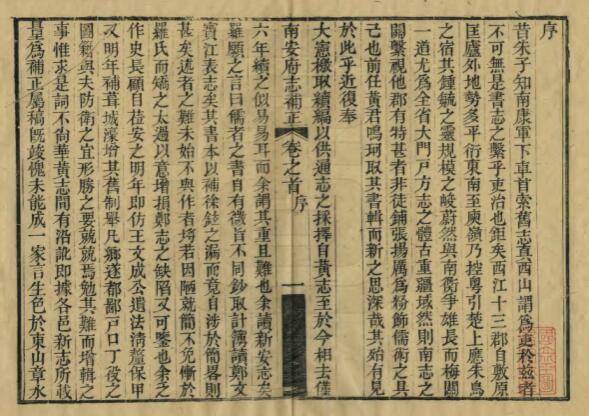 序
昔朱子知南康軍下車首索舊志直西山謂爲吏於茲者
不可無是書志之繫乎吏治也鉅矣西江十三郡自敷原
匡廬外地勢多平衍東南至庾嶺乃控粤引楚上應朱鳥
之宿其鍾毓之靈規模之峻蔚然與南衡爭雄長而梅關
一道尤爲全省大門戸方志之體古重疆域然則南志之
關繫視他郡有特甚者非徒鋪張揚厲爲粉飾儒術之具
已也前任黃君鳴珂取其書輯而新之思深哉其殆有見
於此乎近復奉
大憲檄取續編以供通志之採擇自黃志至於今相去僅
南安府志補正
卷之首
序
一
六年續之似易易耳而余謂其重且難也余讀新安志矣
羅願之言曰儒者之書自有微旨不同鈔取計簿讀鄭文
寶江表志矣其書本以補徐鉉之漏而竟自涉於簡畧則
甚矣述者之難未始不與作者埓若因陋就簡不免慚於
羅氏而矯之太過以意增損鄭志之缺陷又可鑒也余之
作史長願自蒞安之明年即仿王文成公遺法淸釐保甲
又明年補葺城濠增其舊制舉凡鄉遂都鄙戸口丁役之
圖籍與夫防衛之宜形勝之要兢兢焉勉其難而增輯之
事惟求是詞不尙華黃志間有沿訛即據各邑新志所載
量爲補正屬稿旣竣愧未能成一家言生色於東山章水